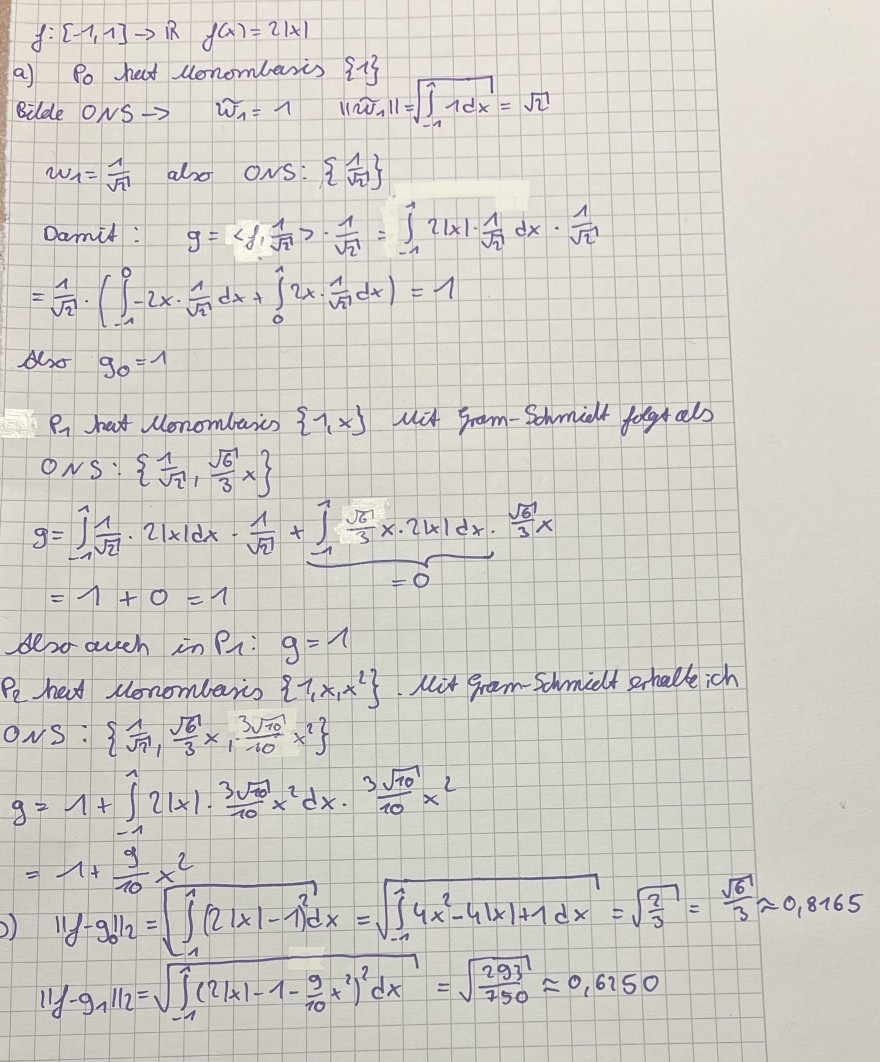 f: [-1,1] → ℝ f(x) = 2|x|
a) P₀ hat Monombasis {1}
Bilde ONS → w̃₁ = 1 ||w̃₁|| = √(∫₋₁¹ 1dx) = √2
w₁ = 1/√2 also ONS: {1/√2}
Damit: g = <f, 1/√2> · 1/√2 = ∫₋₁¹ 2|x| · 1/√2 dx · 1/√2
= 1/√2 · (∫₋₁⁰ -2x · 1/√2 dx + ∫₀¹ 2x · 1/√2 dx) = 1
Also g₀ = 1
P₁ hat Monombasis {1,x} Mit Gram-Schmidt folgt als
ONS: {1/√2, √6/3 x}
g = ∫₋₁¹ 1/√2 · 2|x|dx · 1/√2 + ∫₋₁¹ √6/3 x · 2|x|dx · √6/3 x
= 0
= 1 + 0 = 1
Also auch in P₁: g = 1
P₂ hat Monombasis {1,x,x²}. Mit Gram-Schmidt erhalte ich
ONS: {1/√2, √6/3 x, 3√10/10 x²}
g = 1 + ∫₋₁¹ 2|x| · 3√10/10 x² dx · 3√10/10 x²
= 1 + 9/10 x²
b) ||f-g₀||₂ = √(∫₋₁¹ (2|x|-1)² dx) = √(∫₋₁¹ 4x²-4|x|+1 dx) = √(2/3) = √6/3 ≈ 0,8165
||f-g₁||₂ = √(∫₋₁¹ (2|x|-1-9/10 x²)² dx) = √(293/750) ≈ 0,6250